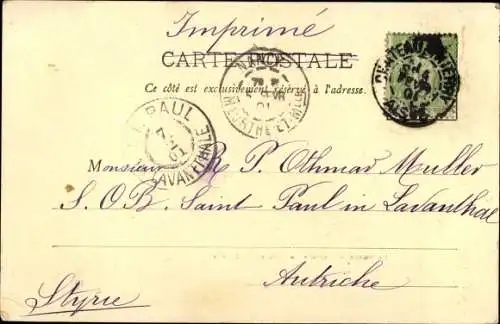 Imprimé
CARTE POSTALE
Ce côté est exclusivement réservé à l'adresse.
NANCY
MEURTHE-ET-MLLE
CHATEAU-THIERRY
AISNE
ST. PAUL
LAVANTTHALE
Monsieur R. P. Othmar Muller
S. O. B. Saint Paul in Lavanthal
Autriche
Styrie